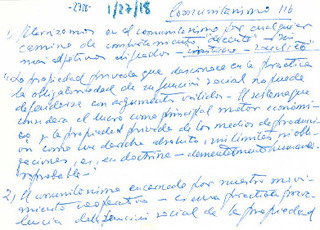 -2316- 1/27/18 Comunitarismo 116
1) Aterrizamos en el comunitarismo por cualquier
camino de comportamiento "decente" - sin
más adjetivos
"La propiedad privada que desconoce en la práctica
la obligatoriedad de su función social no puede
defenderse con argumentos válidos. El sistema que
considera el lucro como principal motor económi-
co y la propiedad privada de los medios de produc-
ción como un derecho absoluto, sin límites ni obli-
gaciones, es, en doctrina -
reprobable"
2) El comunitarismo encarnado por nuestro movi-
miento cooperativo - es una práctica
de la función social de la propiedad